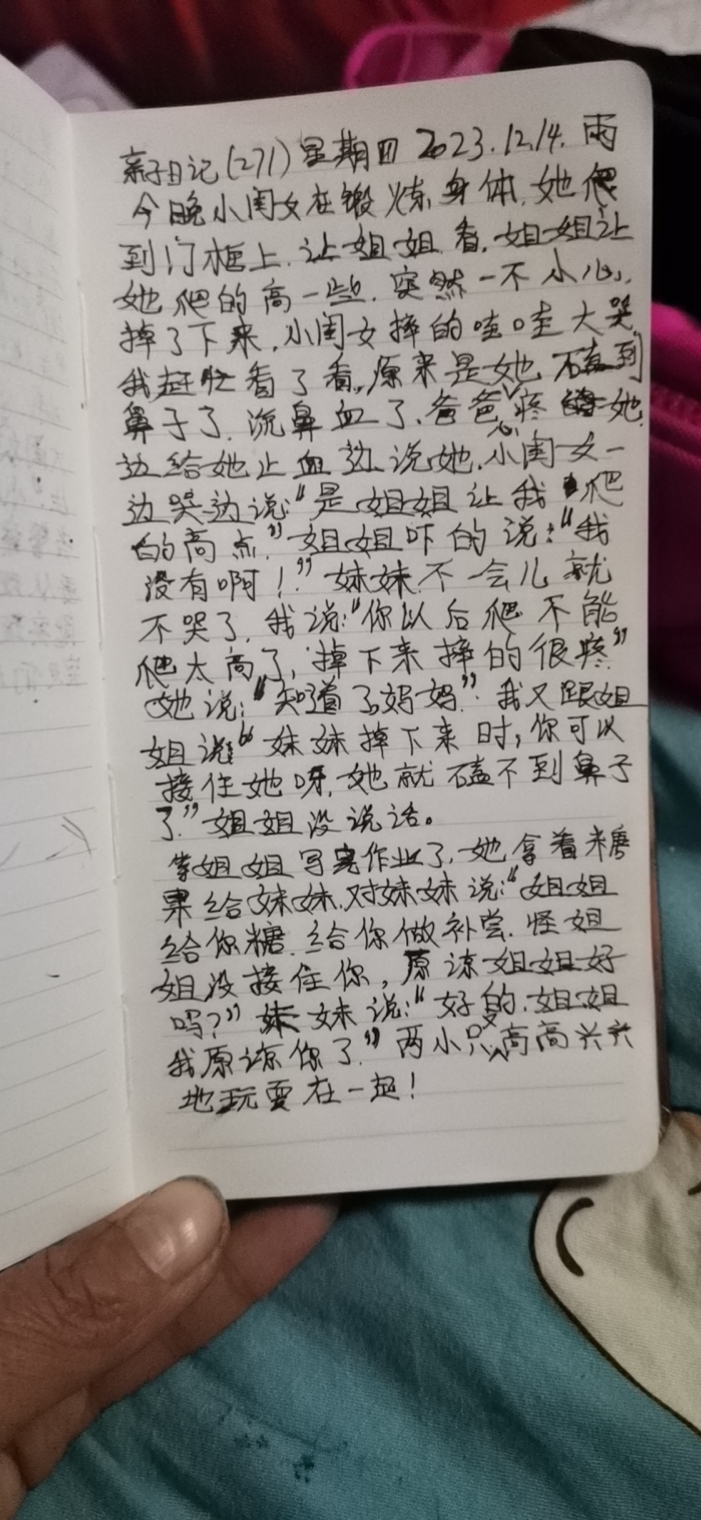 亲子日记(271)星期四 2023.12.14. 雨
今晚小闺女在锻炼身体.她爬
到门框上.让姐姐看.姐姐让
她爬的高一些.突然一不小心,
掉了下来.小闺女摔的哇哇大哭,
我赶忙看了看,原来是她磕到
鼻子了.流鼻血了.爸爸心疼她.
边给她止血边说她.小闺女一
边哭边说“是姐姐让我爬
的高点.”姐姐吓的说:“我
没有啊!”妹妹不一会儿就
不哭了.我说:“你以后爬不能
爬太高了,掉下来摔的很疼”
她说:“知道了妈妈”.我又跟姐
姐说“妹妹掉下来时,你可以
接住她呀.她就磕不到鼻子
了.”姐姐没说话。
等姐姐写完作业了.她拿着糖
果给妹妹.对妹妹说:“姐姐
给你糖.给你做补尝.怪姐
姐没接住你,原谅姐姐好
吗?”妹妹说:“好的.姐姐
我原谅你了.”两小只又高高兴兴
地玩耍在一起!